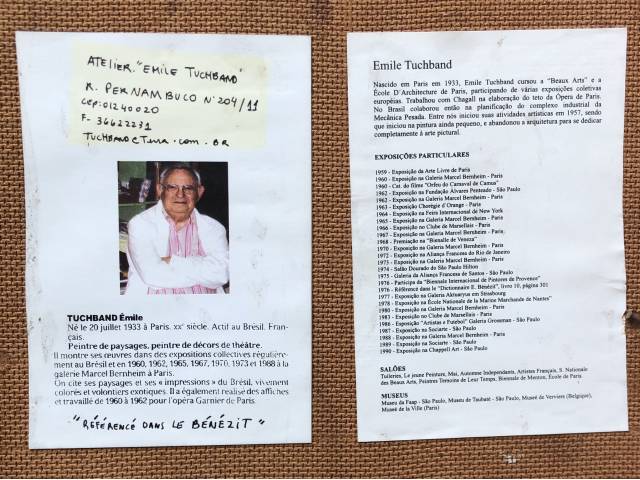 ATELIER "EMILE TUCHBAND"
R. PERNAMBUCO Nº 204/11
CEP: 01240020
F- 36622231
TUCHBAND@TERRA.COM.BR
TUCHBAND Émile
Né le 20 juillet 1933 à Paris. XXe siècle. Actif au Brésil. Fran-
çais.
Peintre de paysages, peintre de décors de théâtre.
Il montre ses œuvres dans des expositions collectives régulière-
ment au Brésil et en 1960, 1962, 1965, 1967, 1970, 1973 et 1988 à la
galerie Marcel Bernheim à Paris.
On cite ses paysages et ses « impressions » du Brésil, vivement
colorés et volontiers exotiques. Il a également réalisé des affiches
et travaillé de 1960 à 1962 pour l'opéra Garnier de Paris.
"RÉFÉRENCÉ DANS LE BÉNÉZIT"
Emile Tuchband
Nascido em Paris em 1933, Emile Tuchband cursou a "Beaux Arts" e a
École D'Architecture de Paris, participando de várias exposições coletivas
européias. Trabalhou com Chagall na elaboração do teto da Ópera de Paris.
No Brasil colaborou então na planificação do complexo industrial da
Mecânica Pesada. Entre nós iniciou suas atividades artísticas em 1957, sendo
que iniciou na pintura ainda pequeno, e abandonou a arquitetura para se dedicar
completamente à arte pictural.
EXPOSIÇÕES PARTICULARES
1959 - Exposição da Arte Livre de Paris
1960 - Exposição na Galeria Marcel Bernheim - Paris
1960 - Cat. do filme "Orfeu do Carnaval de Camus"
1962 - Exposição na Fundação Álvares Penteado - São Paulo
1962 - Exposição na Galeria Marcel Bernheim - Paris
1963 - Exposição Chorégie d'Orange - Paris
1964 - Exposição na Feira Internacional de New York
1965 - Exposição na Galeria Marcel Bernheim - Paris
1966 - Exposição no Clube de Marsellais - Paris
1967 - Exposição na Galeria Marcel Bernheim - Paris
1968 - Premiação na "Bienalle de Veneza"
1970 - Exposição na Galeria Marcel Bernheim - Paris
1972 - Exposição na Aliança Francesa do Rio de Janeiro
1973 - Exposição na Galeria Marcel Bernheim - Paris
1974 - Salão Dourado do São Paulo Hilton
1975 - Galeria da Aliança Francesa de Santos - São Paulo
1976 - Participa da "Biennale Internacional de Pintores de Provence"
1976 - Référence dans le "Dictionnaire E. Bénézit", livro 10, página 301
1977 - Exposição na Galeria Aktuaryus em Strasbourg
1978 - Exposição na École Nationale de la Marine Marchande de Nantes"
1980 - Exposição na Galeria Marcel Bernheim - Paris
1983 - Exposição no Clube de Marsellais - Paris
1986 - Exposição "Artistas e Futebol" Galeria Grossman - São Paulo
1987 - Exposição no Sociarte - São Paulo
1988 - Exposição na Galeria Marcel Bernheim - Paris
1989 - Exposição na Sociarte - São Paulo
1990 - Exposição em Chappell Art - São Paulo
SALÕES
Tuileries, Le jeune Peinture, Mai, Automne Independants, Artistes Français, S. Nationale
des Beaux Arts, Peintres Temoins de Leur Temps, Biennale de Menton, École de Paris.
MUSEUS
Museu da Faap - São Paulo, Museu de Taubaté - São Paulo, Museé de Verviers (Belgique),
Museé de la Ville (Paris)